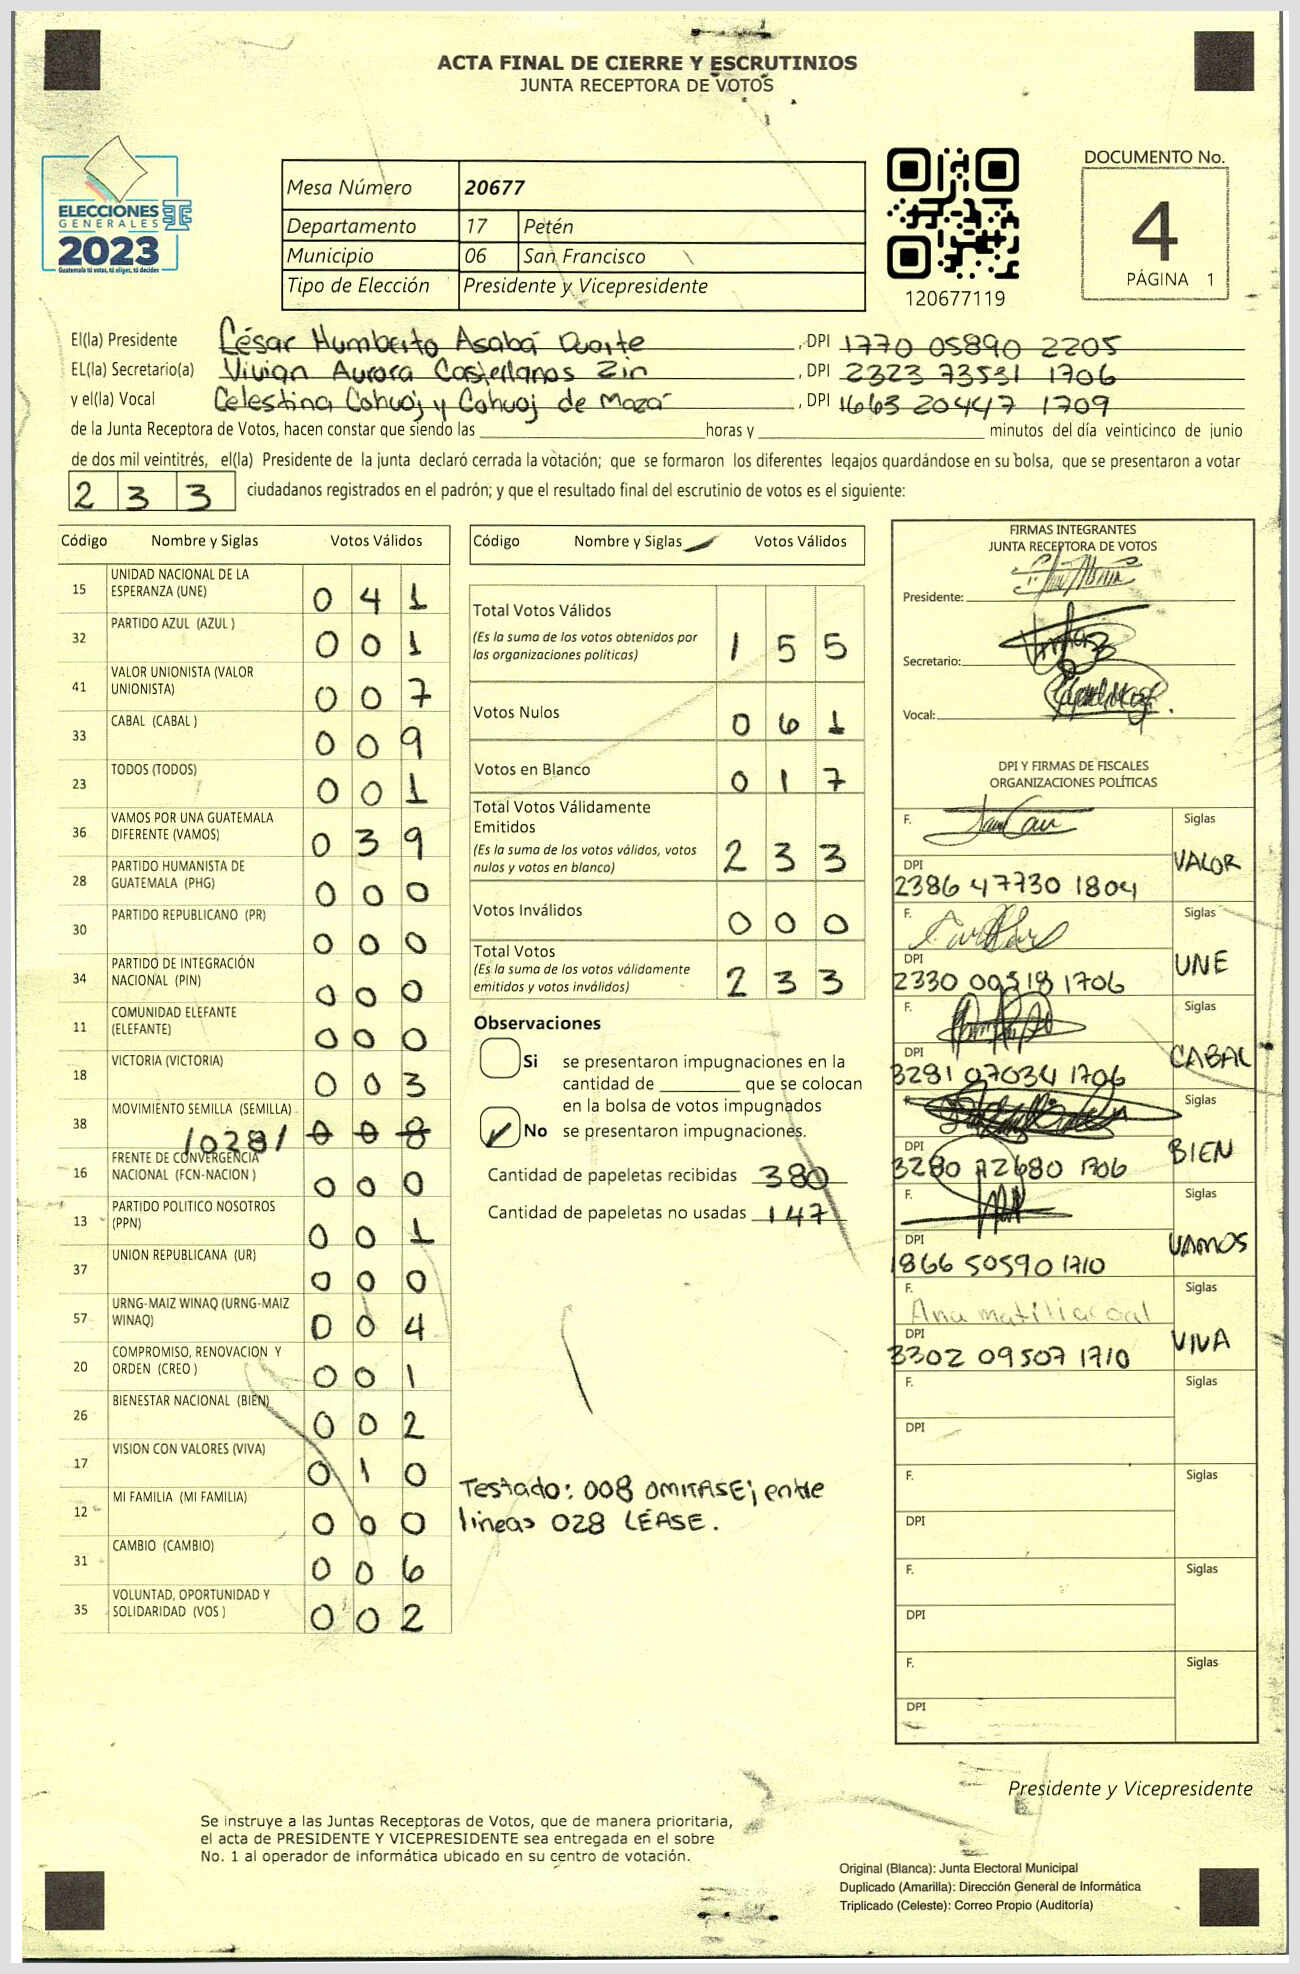 ACTA FINAL DE CIERRE Y ESCRUTINIOS
JUNTA RECEPTORA DE VOTOS
ELECCIONES
GENERALES
2023
Guatemala tú votas, tú eliges, tú decides
Mesa Número 20677
Departamento 17 Petén
Municipio 06 San Francisco
Tipo de Elección Presidente y Vicepresidente
120677119
DOCUMENTO No.
4
PÁGINA 1
El(la) Presidente César Humberto Asabá Duarte, DPI 1770 05890 2205
EL(la) Secretario(a) Vivian Aurora Castellanos Zin, DPI 2323 73531 1706
y el(la) Vocal Celestina Cohuoj y Cohuoj de Mazá, DPI 1663 20447 1709
de la Junta Receptora de Votos, hacen constar que siendo las ____ horas y ____ minutos del día veinticinco de junio
de dos mil veintitrés, el(la) Presidente de la junta declaró cerrada la votación; que se formaron los diferentes legajos guardándose en su bolsa, que se presentaron a votar
233 ciudadanos registrados en el padrón; y que el resultado final del escrutinio de votos es el siguiente:
Código Nombre y Siglas Votos Válidos
15 UNIDAD NACIONAL DE LA ESPERANZA (UNE) 0 4 1
32 PARTIDO AZUL (AZUL ) 0 0 1
41 VALOR UNIONISTA (VALOR UNIONISTA) 0 0 7
33 CABAL (CABAL ) 0 0 9
23 TODOS (TODOS) 0 0 1
36 VAMOS POR UNA GUATEMALA DIFERENTE (VAMOS) 0 3 9
28 PARTIDO HUMANISTA DE GUATEMALA (PHG) 0 0 0
30 PARTIDO REPUBLICANO (PR) 0 0 0
34 PARTIDO DE INTEGRACIÓN NACIONAL (PIN) 0 0 0
11 COMUNIDAD ELEFANTE (ELEFANTE) 0 0 0
18 VICTORIA (VICTORIA) 0 0 3
38 MOVIMIENTO SEMILLA (SEMILLA) /028/ 0 0 8
16 FRENTE DE CONVERGENCIA NACIONAL (FCN-NACION ) 0 0 0
13 PARTIDO POLITICO NOSOTROS (PPN) 0 0 1
37 UNION REPUBLICANA (UR) 0 0 0
57 URNG-MAIZ WINAQ (URNG-MAIZ WINAQ) 0 0 4
20 COMPROMISO, RENOVACION Y ORDEN (CREO ) 0 0 1
26 BIENESTAR NACIONAL (BIEN) 0 0 2
17 VISION CON VALORES (VIVA) 0 1 0
12 MI FAMILIA (MI FAMILIA) 0 0 0
31 CAMBIO (CAMBIO) 0 0 6
35 VOLUNTAD, OPORTUNIDAD Y SOLIDARIDAD (VOS ) 0 0 2
Código Nombre y Siglas Votos Válidos
Total Votos Válidos 1 5 5
(Es la suma de los votos obtenidos por
las organizaciones políticas)
Votos Nulos 0 6 1
Votos en Blanco 0 1 7
Total Votos Válidamente
Emitidos 2 3 3
(Es la suma de los votos válidos, votos
nulos y votos en blanco)
Votos Inválidos 0 0 0
Total Votos 2 3 3
(Es la suma de los votos válidamente
emitidos y votos inválidos)
Observaciones
Si se presentaron impugnaciones en la
cantidad de ____ que se colocan
en la bolsa de votos impugnados
No se presentaron impugnaciones.
Cantidad de papeletas recibidas 380
Cantidad de papeletas no usadas 147
Testado: 008 OMITASE; entre
lineas 028 LÉASE.
FIRMAS INTEGRANTES
JUNTA RECEPTORA DE VOTOS
Presidente:
Secretario:
Vocal:
DPI Y FIRMAS DE FISCALES
ORGANIZACIONES POLÍTICAS
F. Siglas
VALOR
DPI
2386 47730 1804
F. Siglas
UNE
DPI
2330 00518 1706
F. Siglas
CABAL
DPI
3281 07034 1706
F. Siglas
BIEN
DPI
3280 72680 1706
F. Siglas
VAMOS
DPI
1866 50590 1710
F. Ana matilia coal Siglas
VIVA
DPI
3302 09507 1710
F. Siglas
DPI
F. Siglas
DPI
F. Siglas
DPI
F. Siglas
DPI
Presidente y Vicepresidente
Se instruye a las Juntas Receptoras de Votos, que de manera prioritaria,
el acta de PRESIDENTE Y VICEPRESIDENTE sea entregada en el sobre
No. 1 al operador de informática ubicado en su centro de votación.
Original (Blanca): Junta Electoral Municipal
Duplicado (Amarilla): Dirección General de Informática
Triplicado (Celeste): Correo Propio (Auditoría)